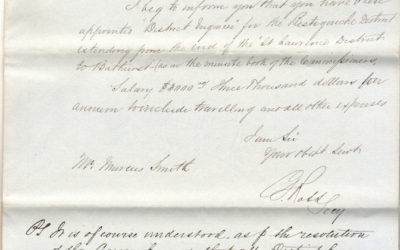 I beg to inform you that you have been
appointed "District Engineer" for the Restigouche District
extending from the end of the St Lawrence District
to Bathurst (as in the minute book of the Commissioners,
Salary $3000.00 three thousand dollars per
annum to include travelling and all other expenses
I am Sir
Your Obdt Servt
Mr Marcus Smith
C. S. Ross
Secy
PS It is of course understood, as p the resolution
of the